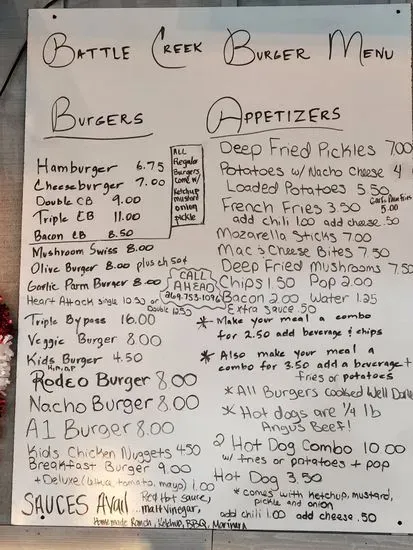 Battle Creek Burger Menu
Burgers
Hamburger 6.75
Cheeseburger 7.00
Double CB 9.00
Triple CB 11.00
Bacon CB 8.50
All
Regular
Burgers
come w/
Ketchup
mustard
onion
pickle
Mushroom Swiss 8.00
Olive Burger 8.00 plus ch 50¢
Garlic Parm Burger 8.00
Heart Attack single 10.50 or Double 12.50
CALL
AHEAD
Triple Bypass 16.00
Veggie Burger 8.00
Kids Burger 4.50
Rodeo Burger 8.00
Nacho Burger 8.00
A1 Burger 8.00
Kids Chicken Nuggets 4.50
Breakfast Burger 9.00
+ Deluxe (lettuce, tomato, mayo) 1.00
SAUCES Avail. Red Hot sauce,
malt vinegar,
Homemade Ranch, Ketchup, BBQ, Marinara
Appetizers
Deep Fried Pickles 7.00
Potatoes w/ Nacho Cheese 4
Loaded Potatoes 5.50
French Fries 3.50
5.00
add chili 1.00 add cheese .50
Mozarella Sticks 7.00
Mac & Cheese Bites 7.50
Deep Fried Mushrooms 7.5
Chips 1.50 Pop 2.00
Bacon 2.00 Water 1.25
Extra Sauce .50
* Make your meal a combo
for 2.50 add beverage & chips
* Also make your meal a
combo for 3.50 add a beverage +
fries or potatoes
* All Burgers cooked Well Done
* Hot dogs are 1/4 lb
Angus Beef!
2 Hot Dog Combo 10.00
w/ fries or potatoes + pop
Hot Dog 3.50
* comes with Ketchup, mustard,
pickle and onion
add chili 1.00 add cheese .50